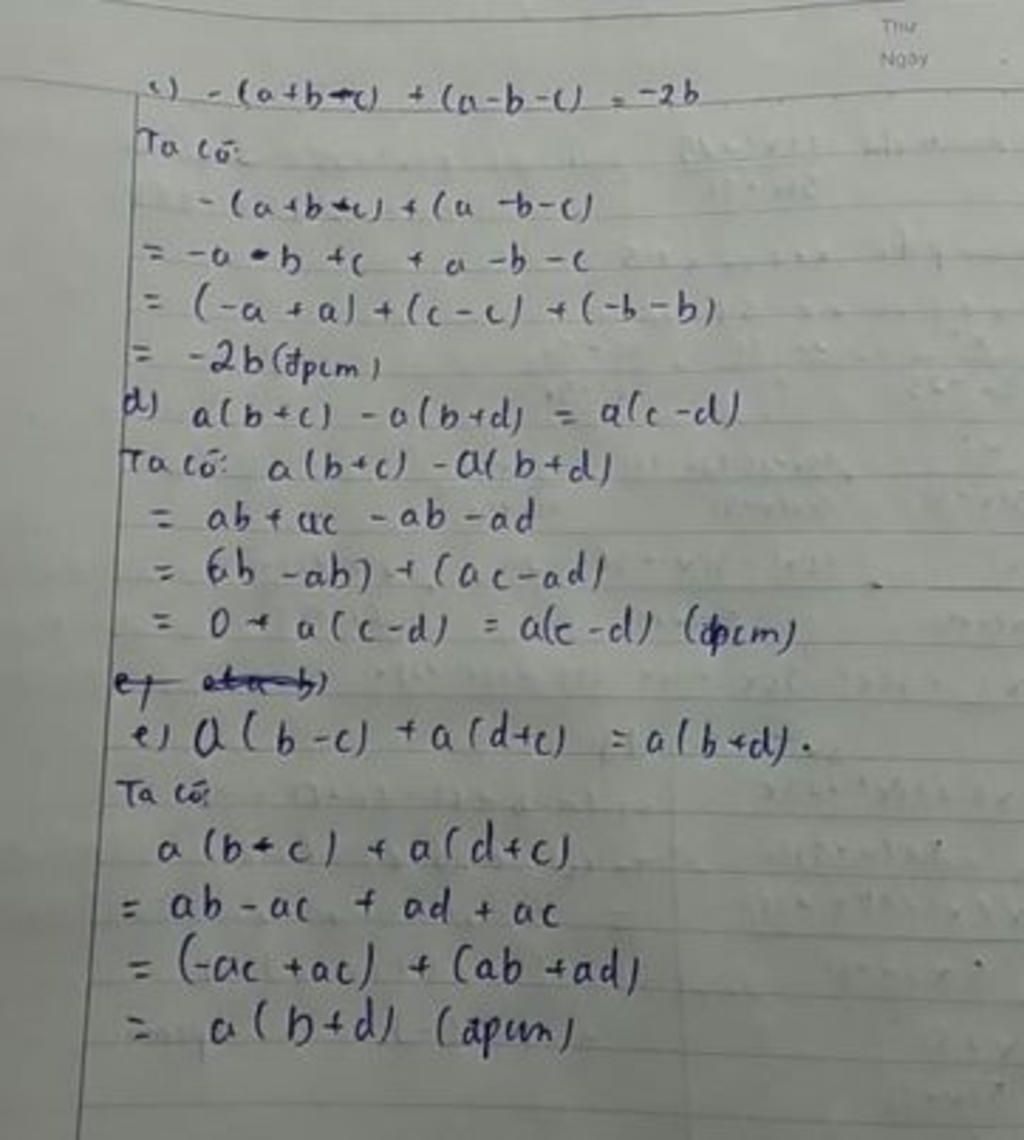 Thứ
Ngày
c) - (a+b-c) + (a-b-c) = -2b
Ta có:
- (a+b-c) + (a -b-c)
= -a - b +c + a -b -c
= (-a + a) + (c - c) + (-b - b)
= -2b (đpcm)
d) a(b+c) - a(b+d) = a(c-d)
Ta có: a(b+c) - a(b+d)
= ab + ac - ab - ad
= (ab - ab) + (ac-ad)
= 0 + a(c-d) = a(c-d) (đpcm)
e) a(b-c) + a(d+c) = a(b+d).
Ta có:
a(b-c) + a(d+c)
= ab - ac + ad + ac
= (-ac +ac) + (ab +ad)
= a(b+d) (đpcm)